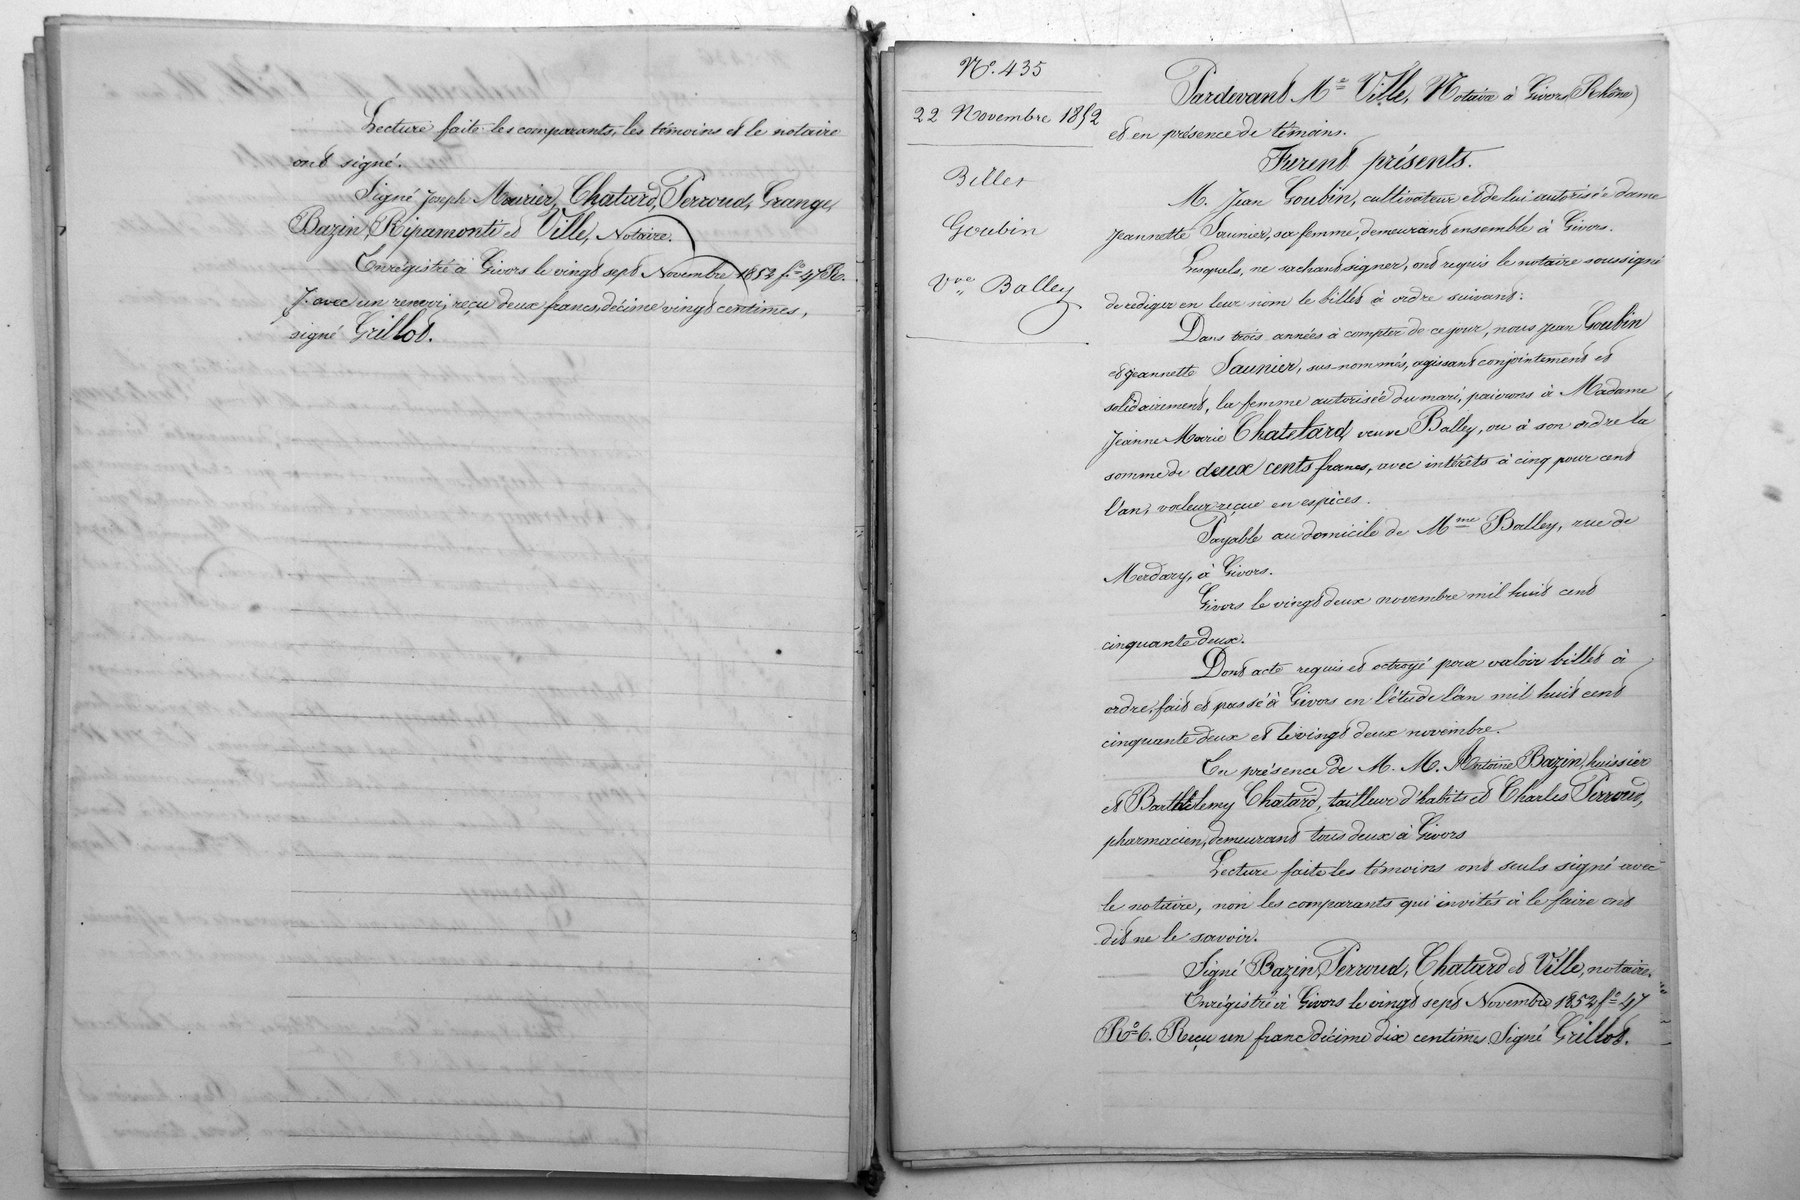 Lecture faite les comparants, les témoins et le notaire
ont signé.
Signé Joseph Mourier, Chatard, Perroud, Grange,
Bazin, Ripamonti et Ville, Notaire.
Enrégistré à Givors le vingt sept Novembre 1852 f.º 47 R.
7. avec un renvoi, reçu deux francs, décime vingt centimes,
signé Grillot.
Nº. 435
22 Novembre 1852
Billet
Goubin
Vve Balley
Pardevant Me Ville, Notaire à Givors (Rhône)
et en présence de témoins.
Furent présents.
M. Jean Goubin, cultivateur et de lui autorisée dame
Jeannette Saunier, sa femme, demeurant ensemble à Givors.
Lesquels, ne sachant signer, ont requis le notaire soussigné
de rediger en leur nom le billet à ordre suivant:
Dans trois années à compter de ce jour, nous Jean Goubin
et Jeannette Saunier, sus-nommés, agissant conjointement et
solidairement, la femme autorisée du mari, paierons à Madame
Jeanne Marie Chatelard, veuve Balley, ou à son ordre la
somme de deux cents francs, avec intérêts à cinq pour cent
l'an, valeur reçue en espèces.
Payable au domicile de Mme Balley, rue de
Merdary, à Givors.
Givors le vingt deux novembre mil huit cent
cinquante deux.
Dont acte requis et octroyé pour valoir billet à
ordre, fait et passé à Givors en l'étude l'an mil huit cent
cinquante deux et le vingt deux novembre.
En présence de M. M. Antoine Bazin, huissier
et Barthélemy Chatard, tailleur d'habits et Charles Perroud,
pharmacien, demeurant tous deux à Givors
Lecture faite les témoins ont seuls signé avec
le notaire, non les comparants qui invités à le faire ont
dit ne le savoir.
Signé Bazin, Perroud, Chatard et Ville, notaire.
Enrégistré à Givors le vingt sept Novembre 1852 fº 47
Rº 6. Reçu un franc décime dix centimes. Signé Grillot.